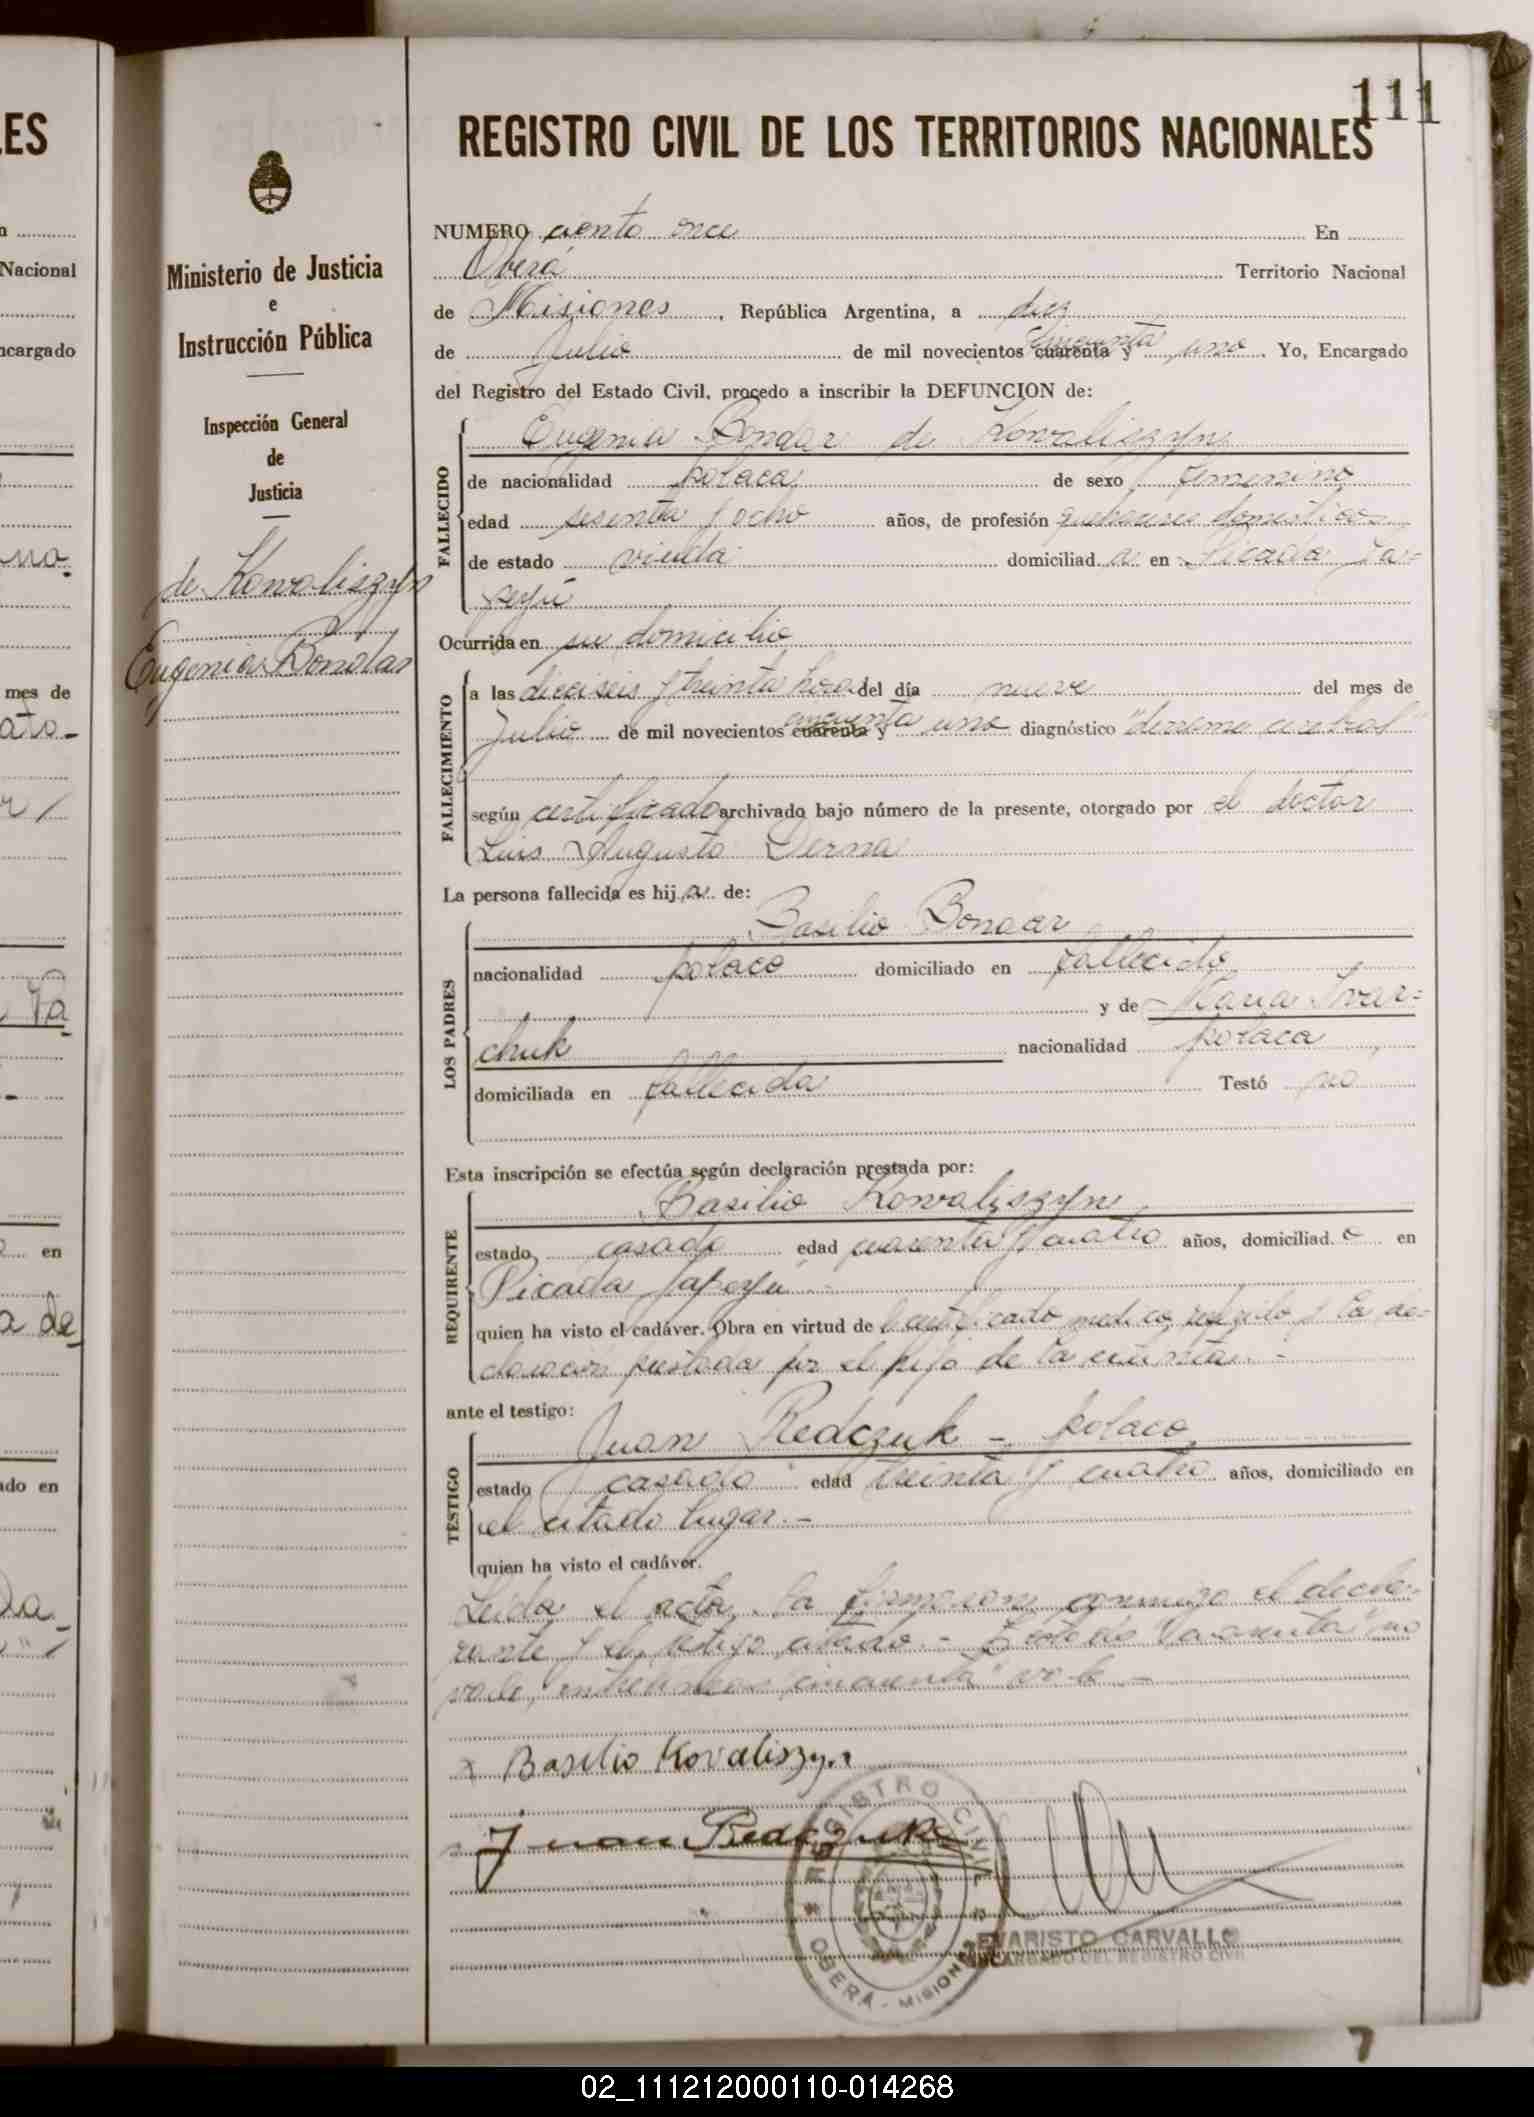 111
REGISTRO CIVIL DE LOS TERRITORIOS NACIONALES
Ministerio de Justicia
e
Instrucción Pública
Inspección General
de
Justicia
de Kowaliszyn
Eugenia Bondar
NUMERO ciento once En
Oberá Territorio Nacional
de Misiones, República Argentina, a diez
de Julio de mil novecientos cuarenta cincuenta y uno. Yo, Encargado
del Registro del Estado Civil, procedo a inscribir la DEFUNCION de:
FALLECIDO
Eugenia Bondar de Kowaliszyn
de nacionalidad polaca de sexo femenino
edad sesenta y ocho años, de profesión quehaceres domesticos
de estado viuda domiciliada en Picada Ya=
peyú
Ocurrida en su domicilio
FALLECIMIENTO
a las dieciseis y treinta horas del día nueve del mes de
Julio de mil novecientos cuarenta cincuenta y uno diagnóstico "derrame cerebral"
según certificado archivado bajo número de la presente, otorgado por el doctor
Luis Augusto Derna
La persona fallecida es hija de:
LOS PADRES
Basilio Bondar
nacionalidad polaco domiciliado en fallecido
y de Maria Ivar=
chuk nacionalidad polaca
domiciliada en fallecida Testó no
Esta inscripción se efectúa según declaración prestada por:
REQUIRENTE
Basilio Kowaliszyn
estado casado edad cuarenta y cuatro años, domiciliado en
Picada Yapeyú.-
quien ha visto el cadáver. Obra en virtud del certificado medico referido y la de=
claración prestada por el hijo de la extinta.-
ante el testigo:
TESTIGO
Juan Redczuk - polaco
estado casado edad treinta y cuatro años, domiciliado en
el citado lugar.-
quien ha visto el cadáver.
Leida el acta, la firmaron conmigo el decla=
rante y el testigo citado.- Testado "cuarenta" no
vale, entrelineas "cincuenta" vale-
x Basilio Kovaliszyn
x Juan Redczuk
REGISTRO CIVIL
OBERÁ - MISIONES
EVARISTO CARVALLO
ENCARGADO DEL REGISTRO CIVIL
7
02_111212000110-014268